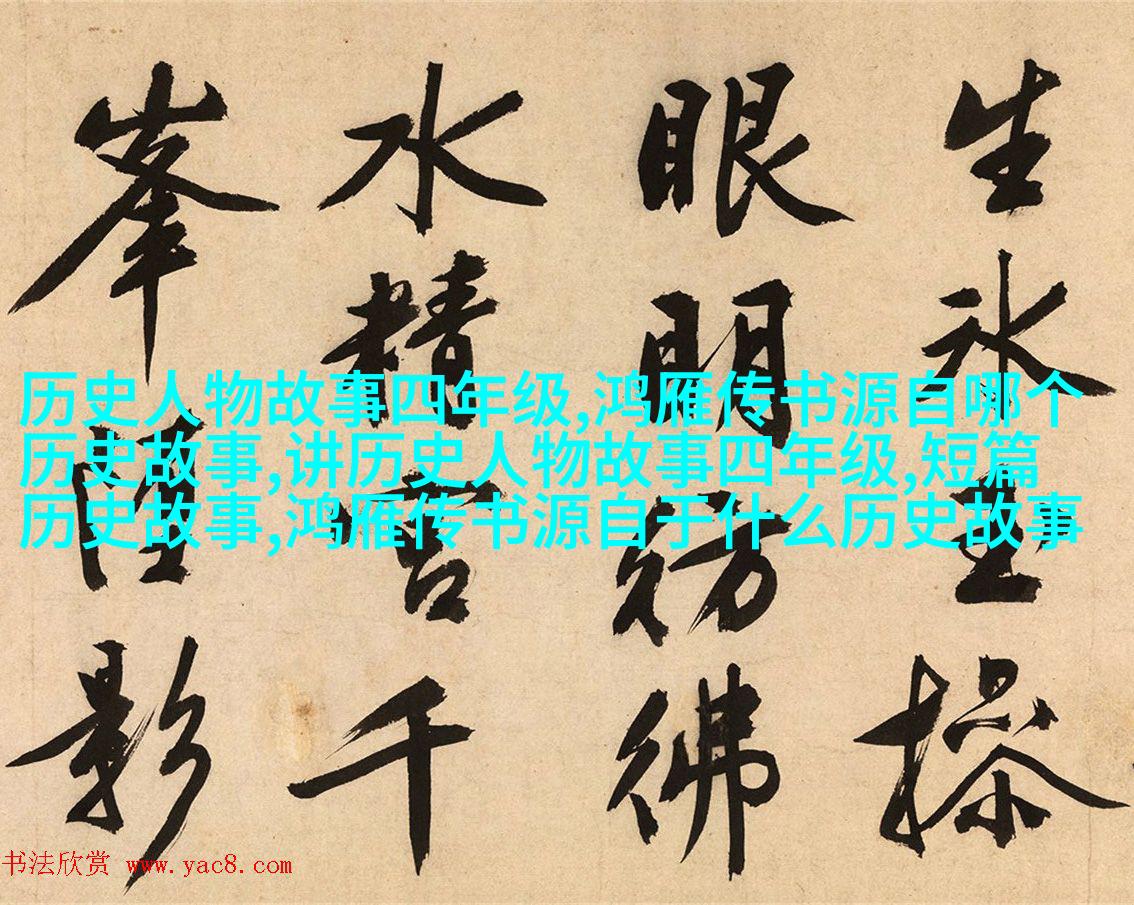 生氷操
眼明彷彿
水精宮千
峯影
历史人物故事四年级,鸿雁传书源自哪个
历史故事,讲历史人物故事四年级,短篇
历史故事,鸿雁传书源自于什么历史故事
书法欣赏 www.yac8.com